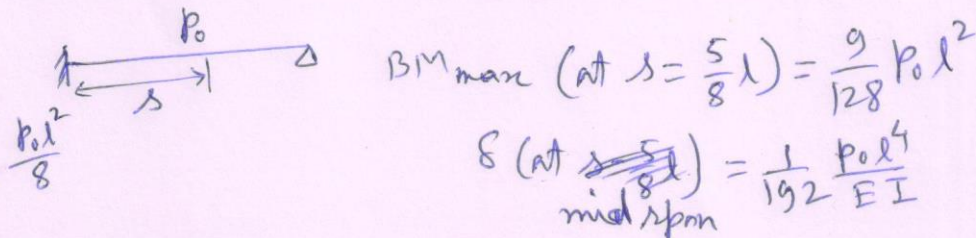 p₀
s
p₀l²/8
BM max (at s = 5/8 l) = 9/128 p₀ l²
δ (at mid span) = 1/192 p₀l⁴/EI